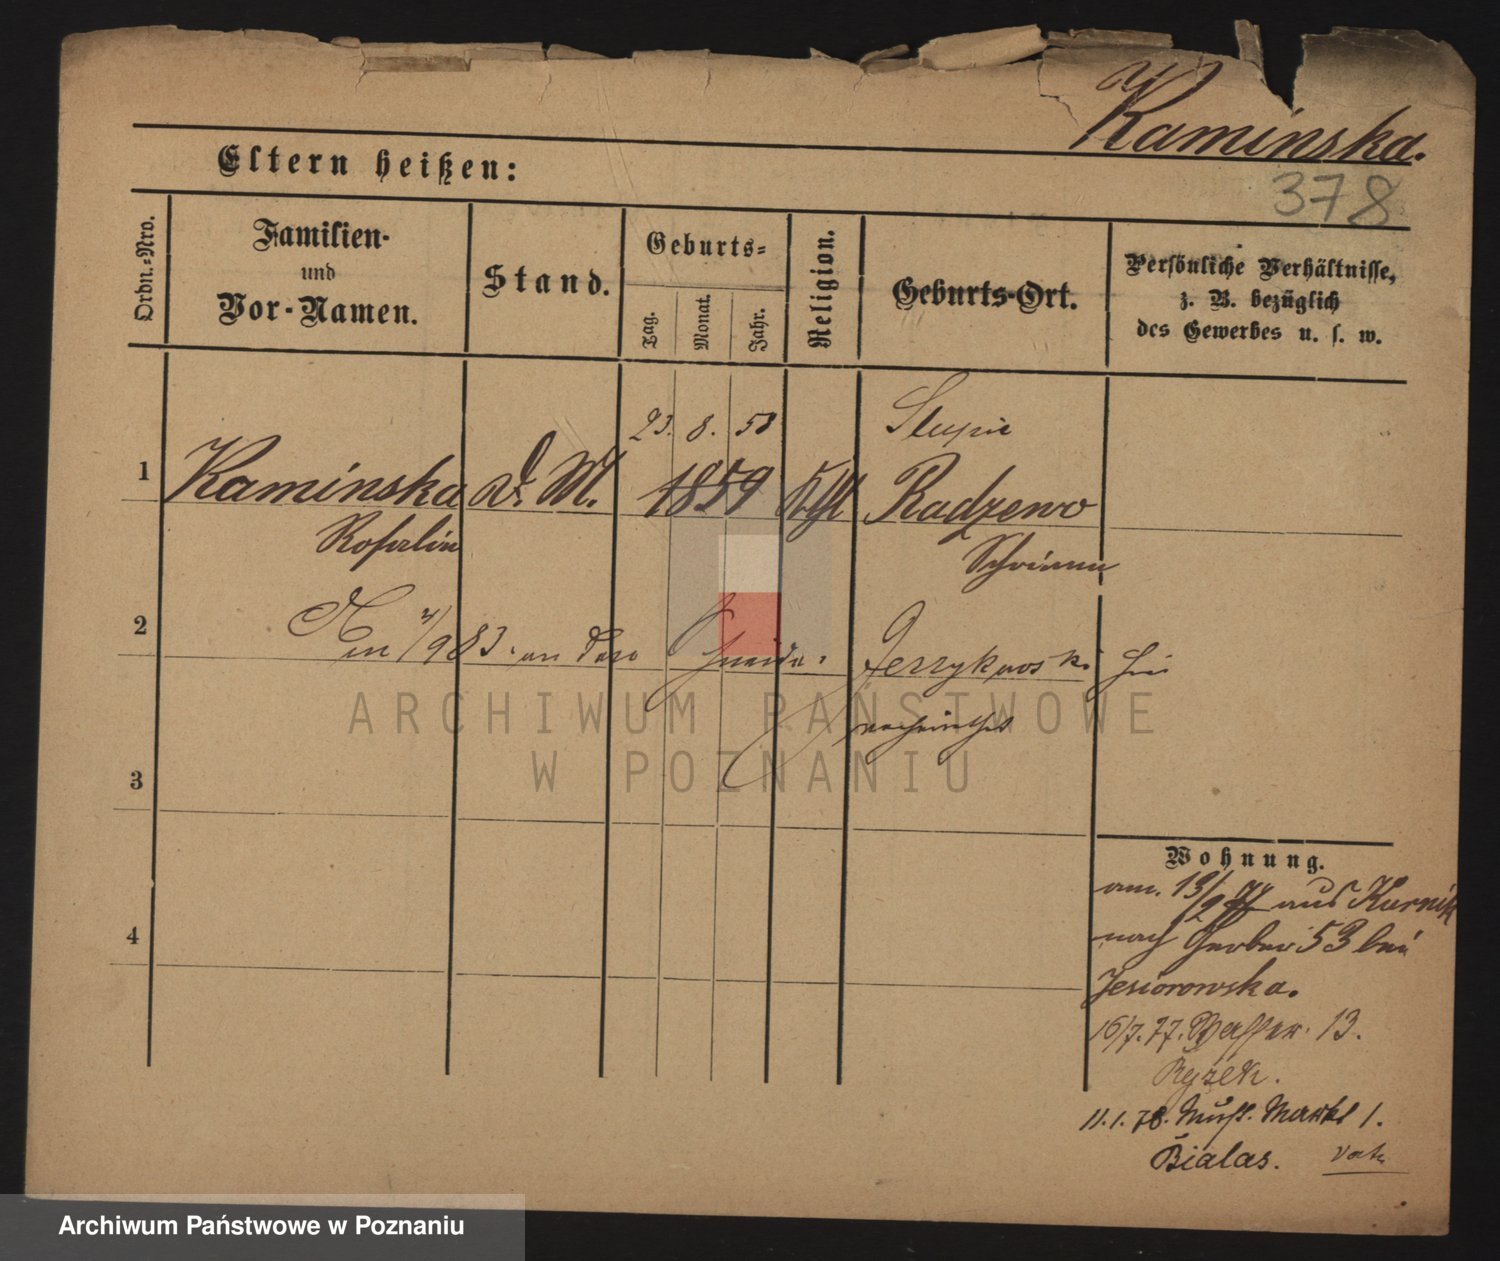 Kaminska.
378
Eltern heißen:
Ordn.-Nro.
Familien-
und
Vor-Namen.
Stand.
Geburts-
Tag.
Monat.
Jahr.
Religion.
Geburts-Ort.
Persönliche Verhältnisse,
z. B. bezüglich
des Gewerbes u. s. w.
23. 8. 58 Slupie
1 Kaminska D. M. 1859 Kath Radzewo
Rosalie Schrimm
2 83. an den Jerzykowski hier
verheirathet
ARCHIWUM PAŃSTWOWE
W POZNANIU
3
4
Wohnung.
am. 13/2 77 aus Kurnik
nach Gerber 53 bei
Jesiorowska.
16/7. 77. Wasser. 13.
Ryzek.
11.1.78. Markt 1.
Bialas.
Archiwum Państwowe w Poznaniu